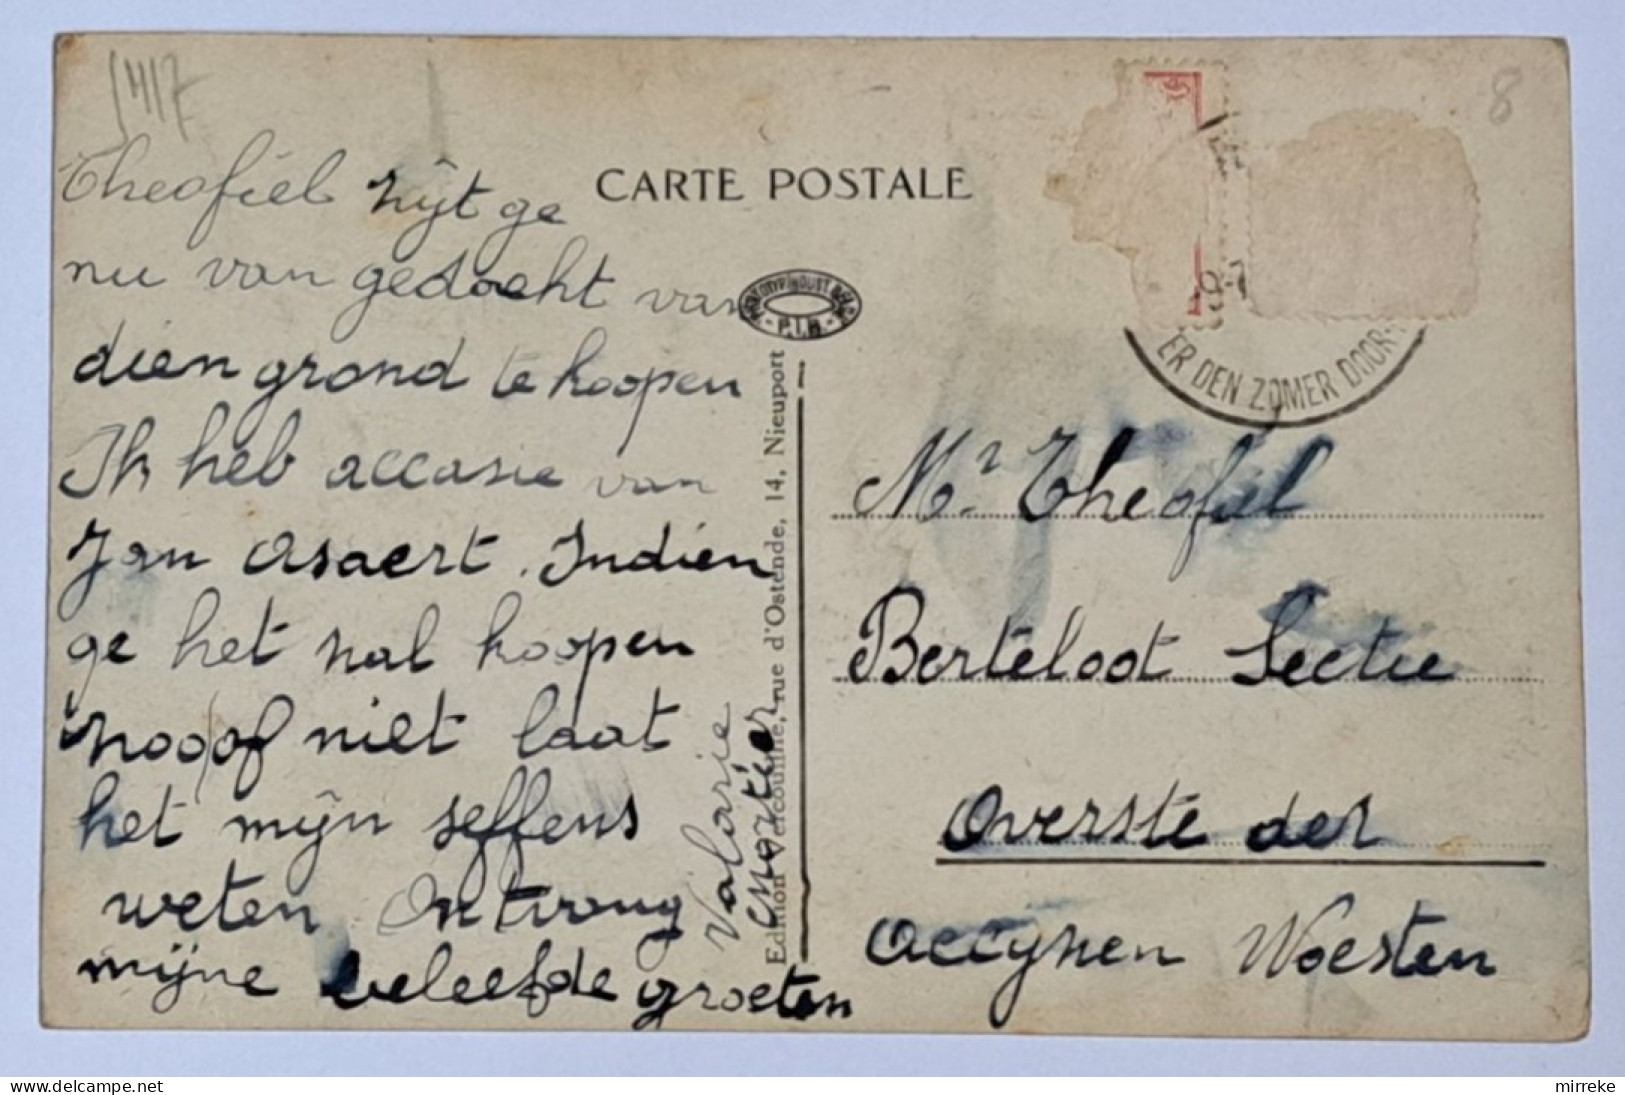 1417
8
CARTE POSTALE
Theofiel zijt ge
nu van gedacht van
dien grond te koopen
Ik heb accasie van
Jan Asaert. Indien
ge het zal koopen
zooof niet laat
het mijn seffens
weten Ontvang
mijne beleefde groeten
Valarie
P.I.B.
Edition Vercouillie, rue d'Ostende, 14, Nieuport
ER DEN ZOMER DOOR
Mr Theofiel
Berteloot Sectie
Overste der
Accijzen Woesten
mirreke